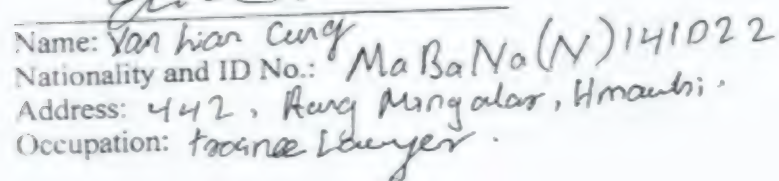 Name: Van Lian Cung
Nationality and ID No.: MaBaNa(N)141022
Address: 442, Aung Mingalar, Hmawbi.
Occupation: trainee Lawyer.